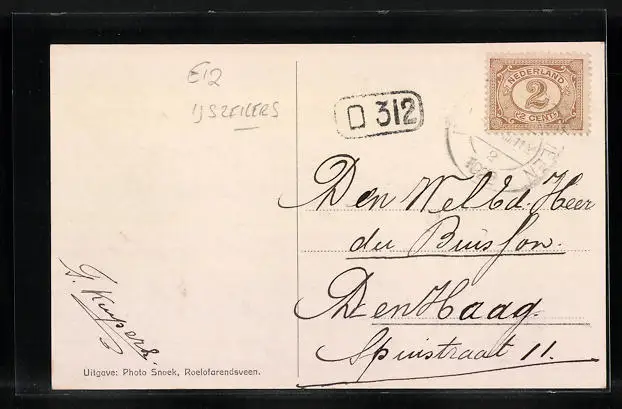 E12
IJSZEILERS
D 312
NEDERLAND
2
2 CENT
Den Wel Ed. Heer
du Buisson.
Den Haag.
Spuistraat 11.
Uitgave: Photo Snoek, Roelofarendsveen.